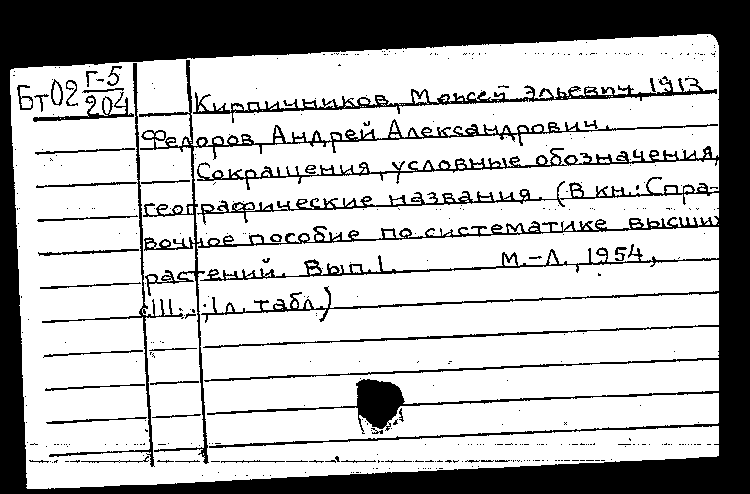 Бт02 Г-5
204
Кирпичников, Моисей Эльевич, 1913
Федоров, Андрей Александрович.
Сокращения, условные обозначения,
географические названия. (В кн.: Спра-
вочное пособие по систематике высших
растений. Вып.1. М.-Л., 1954,
1 л. табл.)